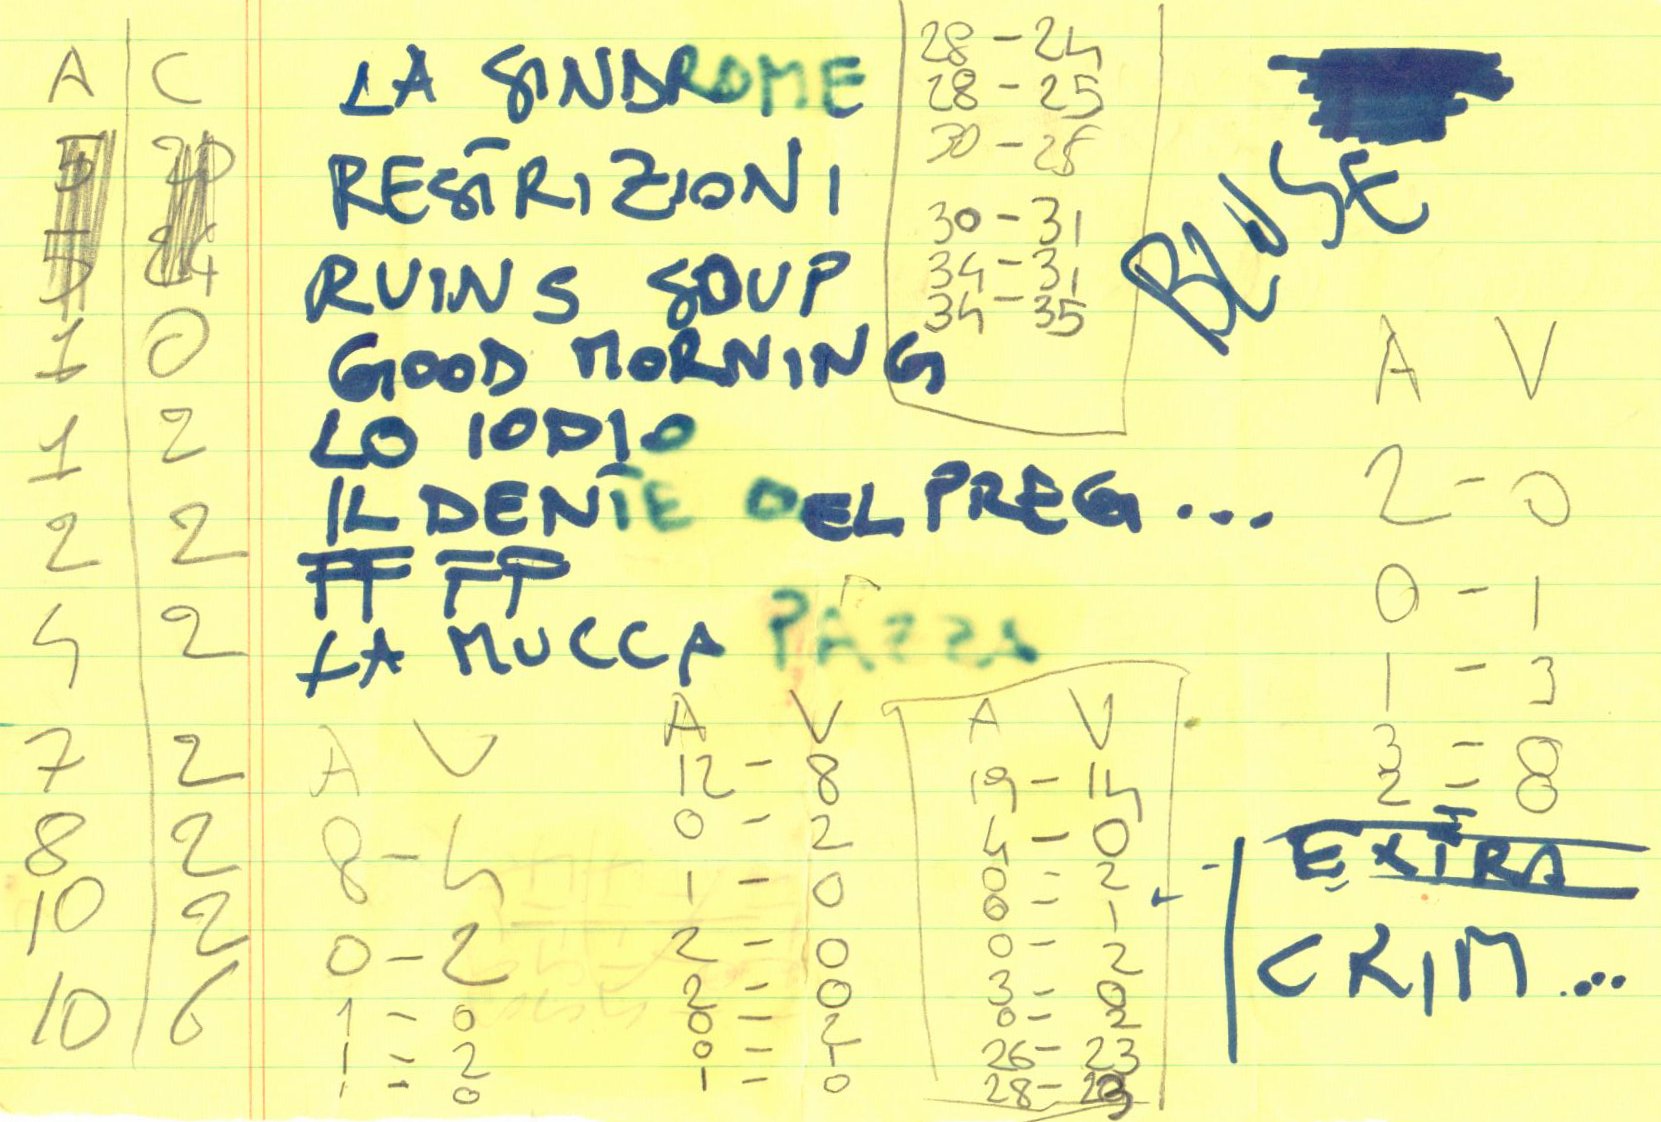 A C
1 0
1 2
2 2
4 2
7 2
8 2
10 2
10 6
LA SINDROME
RESTRIZIONI
RUINS SOUP
GOOD MORNING
LO IODIO
IL DENTE DEL PREG...
FF FP
LA MUCCA PAZZA
28 - 24
28 - 25
30 - 28
30 - 31
34 - 31
34 - 35
BLUSE
A V
2 - 0
0 - 1
1 - 3
3 - 0
2 - 0
A V
8 - 4
0 - 2
1 - 0
1 - 2
1 - 0
A V
12 - 8
0 - 2
1 - 0
2 - 0
2 - 0
0 - 2
0 - 1
1 - 0
A V
19 - 14
4 - 0
0 - 2
0 - 1
0 - 2
3 - 0
0 - 2
26 - 23
28 -
EXTRA
CRIM...